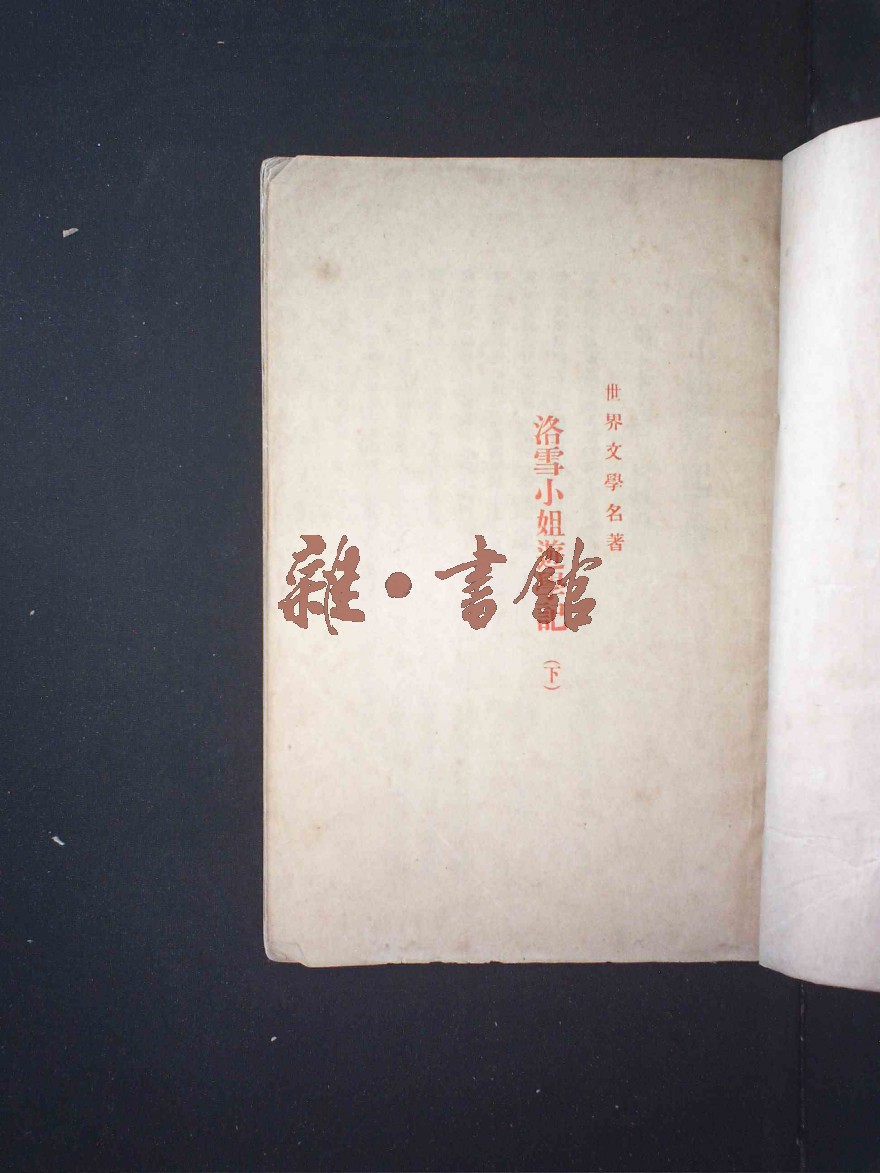 世界文學名著
洛雪小姐遊學記
（下）
雜·書館